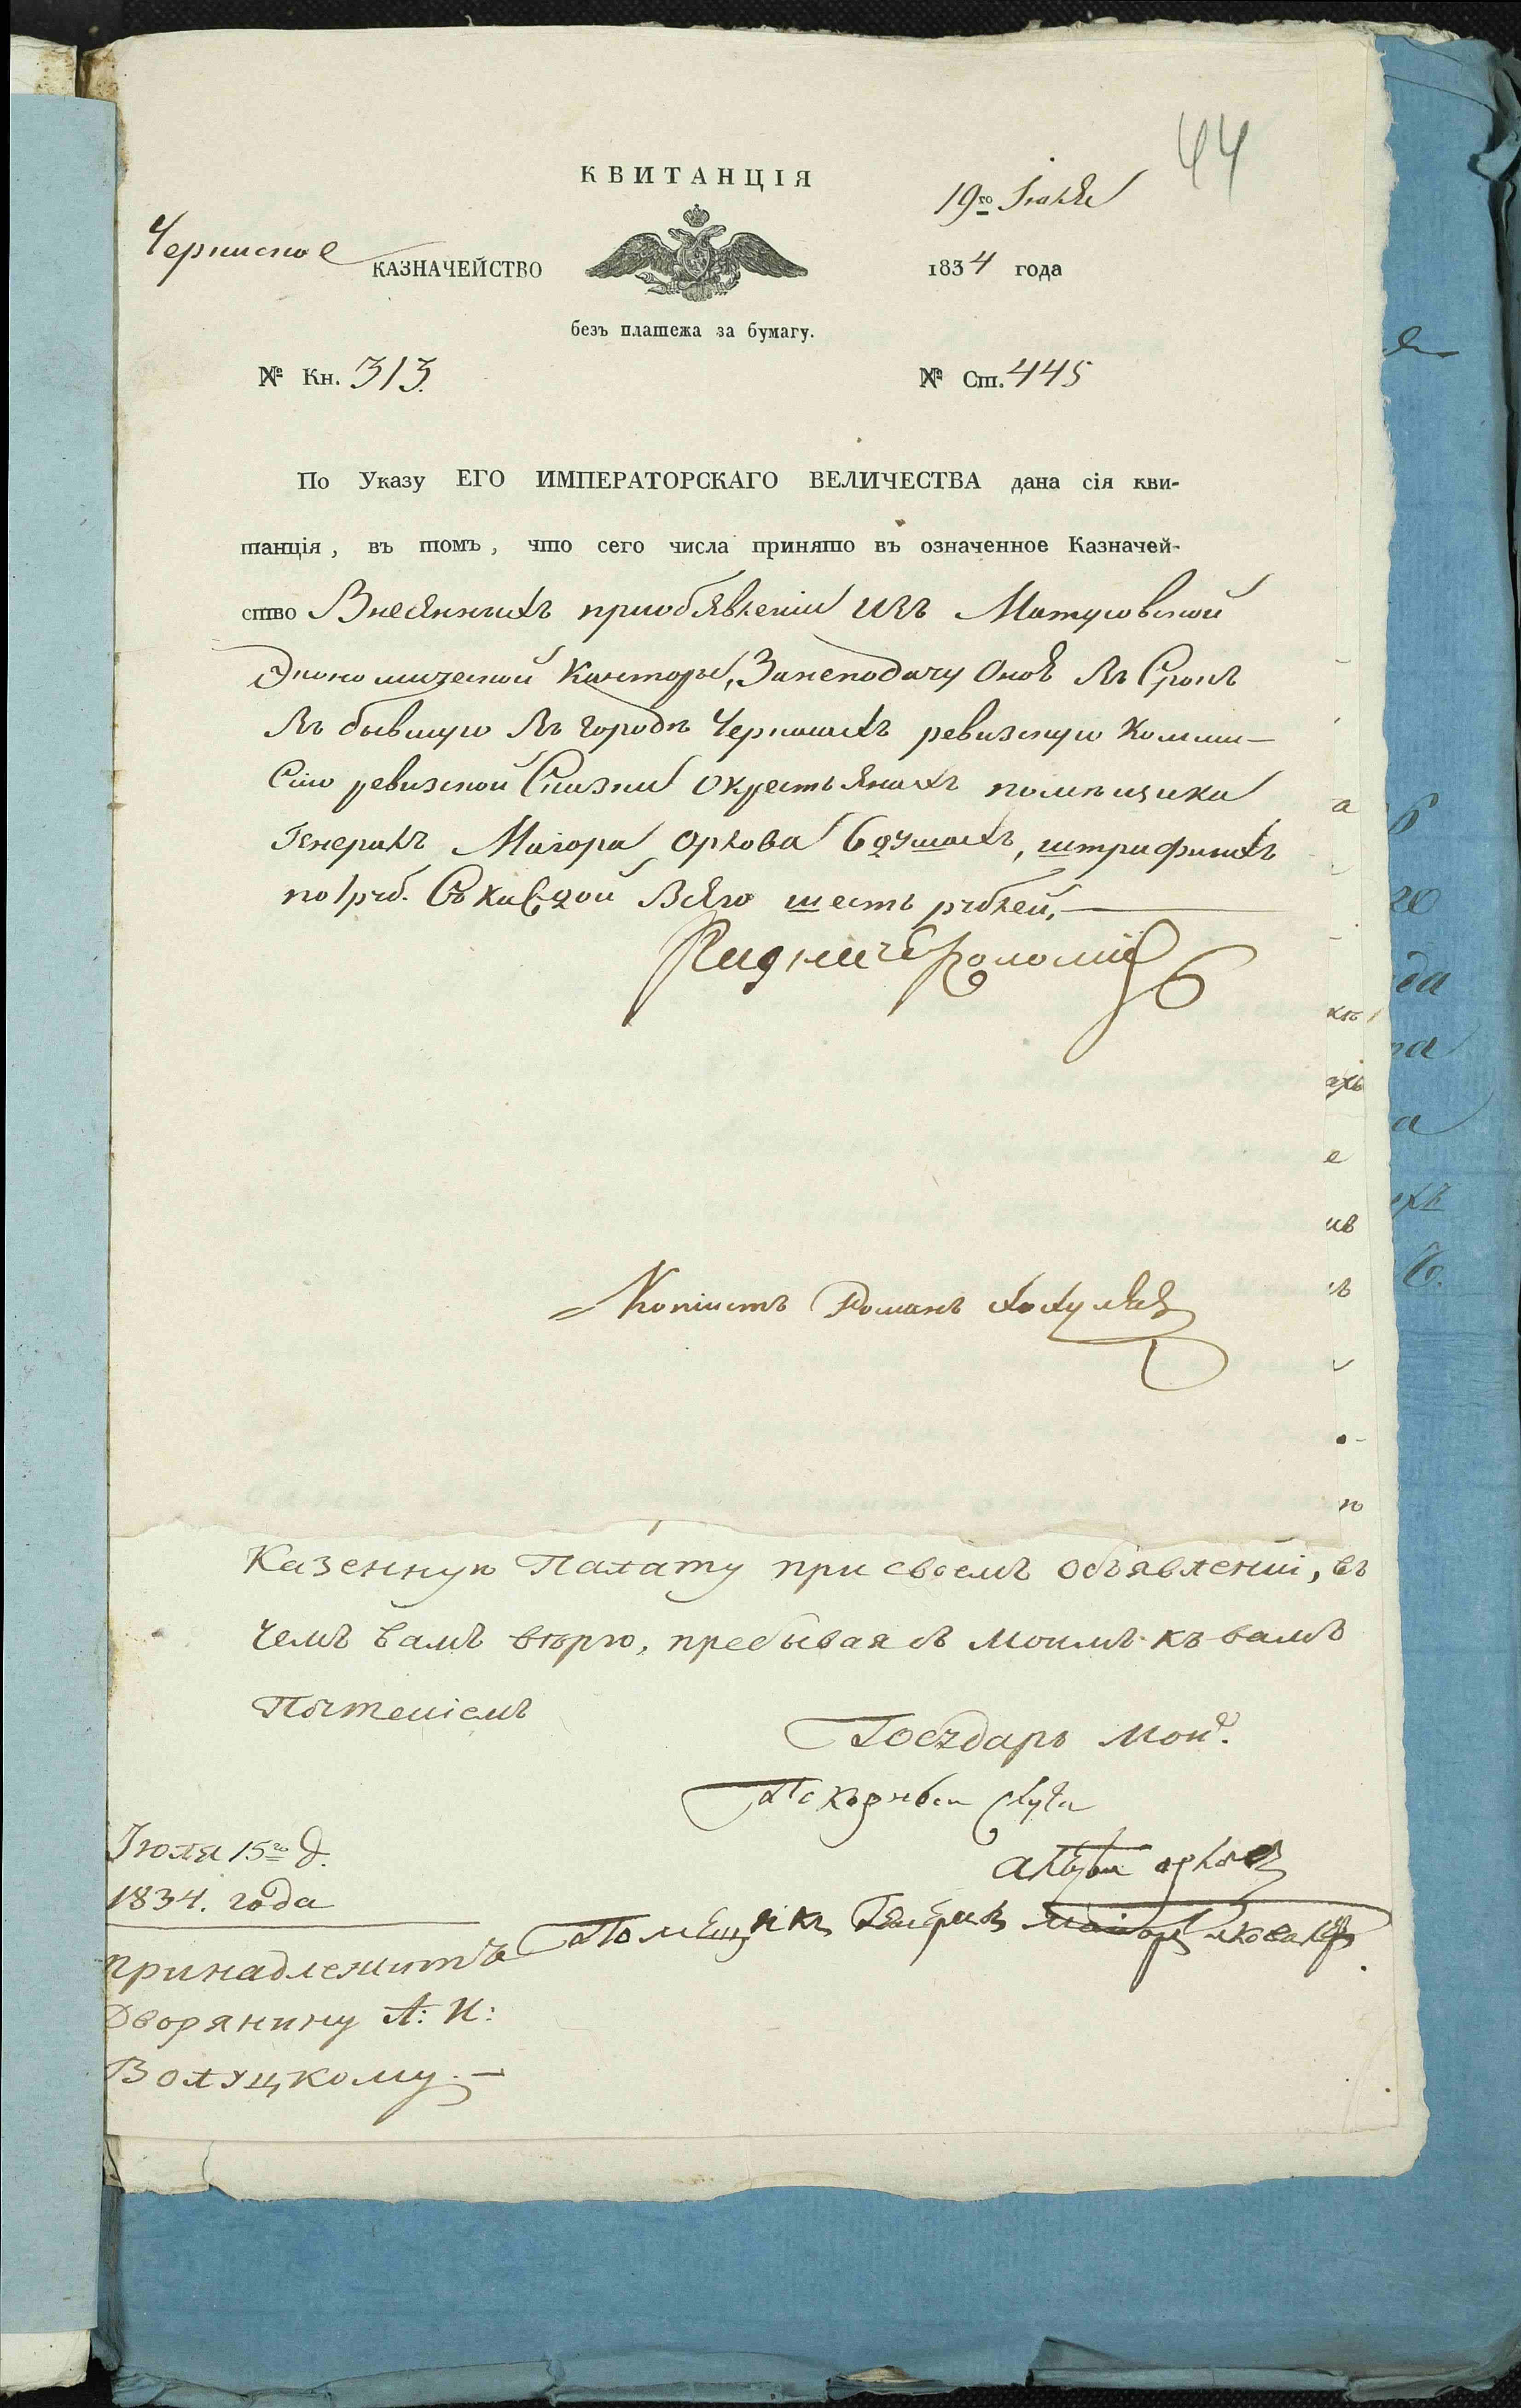 44
КВИТАНЦІЯ
19го Іюля
Черкиское КАЗНАЧЕЙСТВО
1834 года
безъ платежа за бумагу.
№ Кн. 313.
№ Ст. 445
По Указу ЕГО ИМПЕРАТОРСКАГО ВЕЛИЧЕСТВА дана сія кви-
танція, въ томъ, что сего числа принято въ означенное Казначей-
ство Внесенныхъ приобявленіи изъ Матусовской
Экономической Канторы, Занеподачу Оноѣ Въ Срокъ
Въ бывшую Въ городѣ Черкасахъ ревизкую Комми-
Сію ревизкой Сказки Окрестьянахъ помѣщика
Генералъ Маіора Орлова 6 душахъ, штрафныхъ
по 1 руб. Съ каждой Всего шесть рублей,
6
Копіистъ Романъ
Казенную Палату при своемъ объявленіи, въ
чемъ вамъ вѣрю, пребывая съ моимъ къ вамъ
Почтеніемъ
Государь мой.
Покорный слуга
орловъ
Іюля 15го д.
1834. года
Помещикъ Генералъ маіоръ
принадлежитъ
Дворянину А: И:
Волуцкому. —